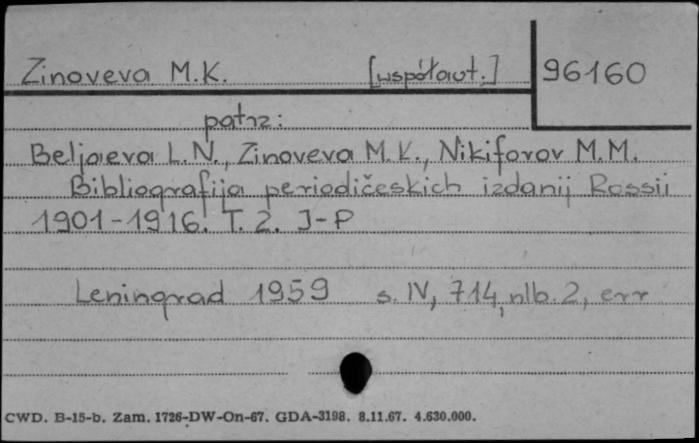 Zinoveva M.K. [współaut.] 96160
patrz:
Beljaeva L.N., Zinoveva M.K., Nikiforov M.M.
Bibliografija periodičeskich izdanij Rossii
1901-1916. T. 2. I-P
Leningrad 1959 s. IV, 714, nlb. 2, err
CWD. B-15-b. Zam. 1726-DW-On-67. GDA-3198. 8.11.67. 4.630.000.